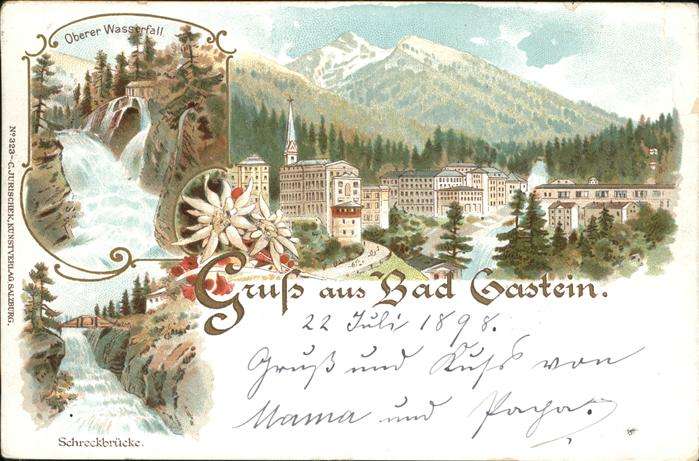 Oberer Wasserfall
No 323 - C. JURISCHEK, KUNSTVERLAG SALZBURG.
Gruß aus Bad Gastein.
22 Juli 1898.
Gruß und Kuß von
Mama und Papa.
Schreckbrücke.